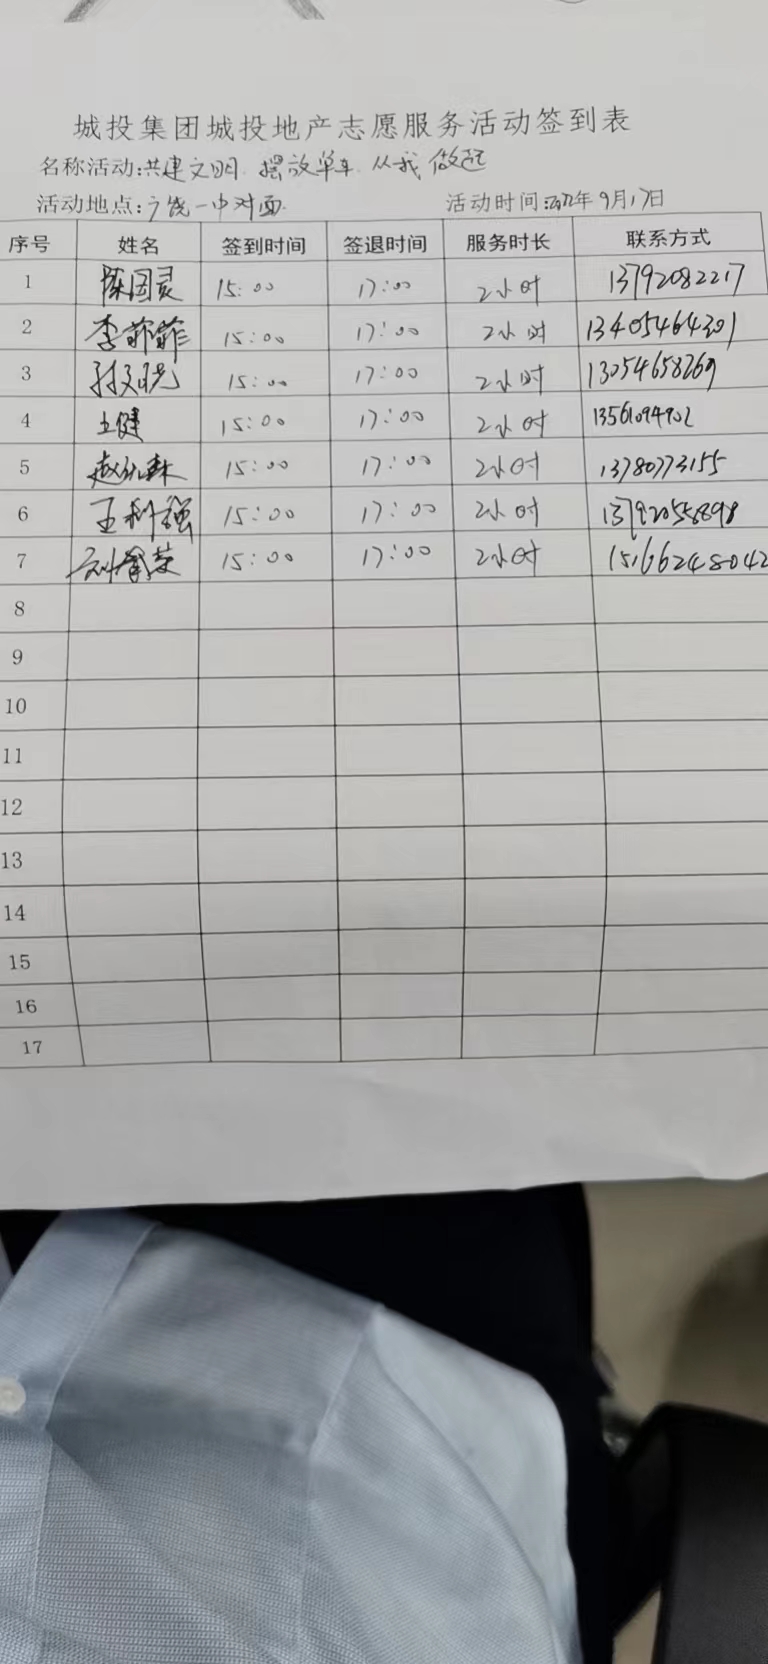 城投集团城投地产志愿服务活动签到表
名称活动:共建文明 摆放单车 从我做起
活动地点:广饶一中对面 活动时间:2022年9月17日
序号 姓名 签到时间 签退时间 服务时长 联系方式
1 陈国灵 15:00 17:00 2小时 13792082217
2 李菲菲 15:00 17:00 2小时 13405464301
3 15:00 17:00 2小时 13054658269
4 王健 15:00 17:00 2小时 13561094902
5 15:00 17:00 2小时 13780773155
6 王利强 15:00 17:00 2小时 13792055898
7 15:00 17:00 2小时 15166248042
8
9
10
11
12
13
14
15
16
17